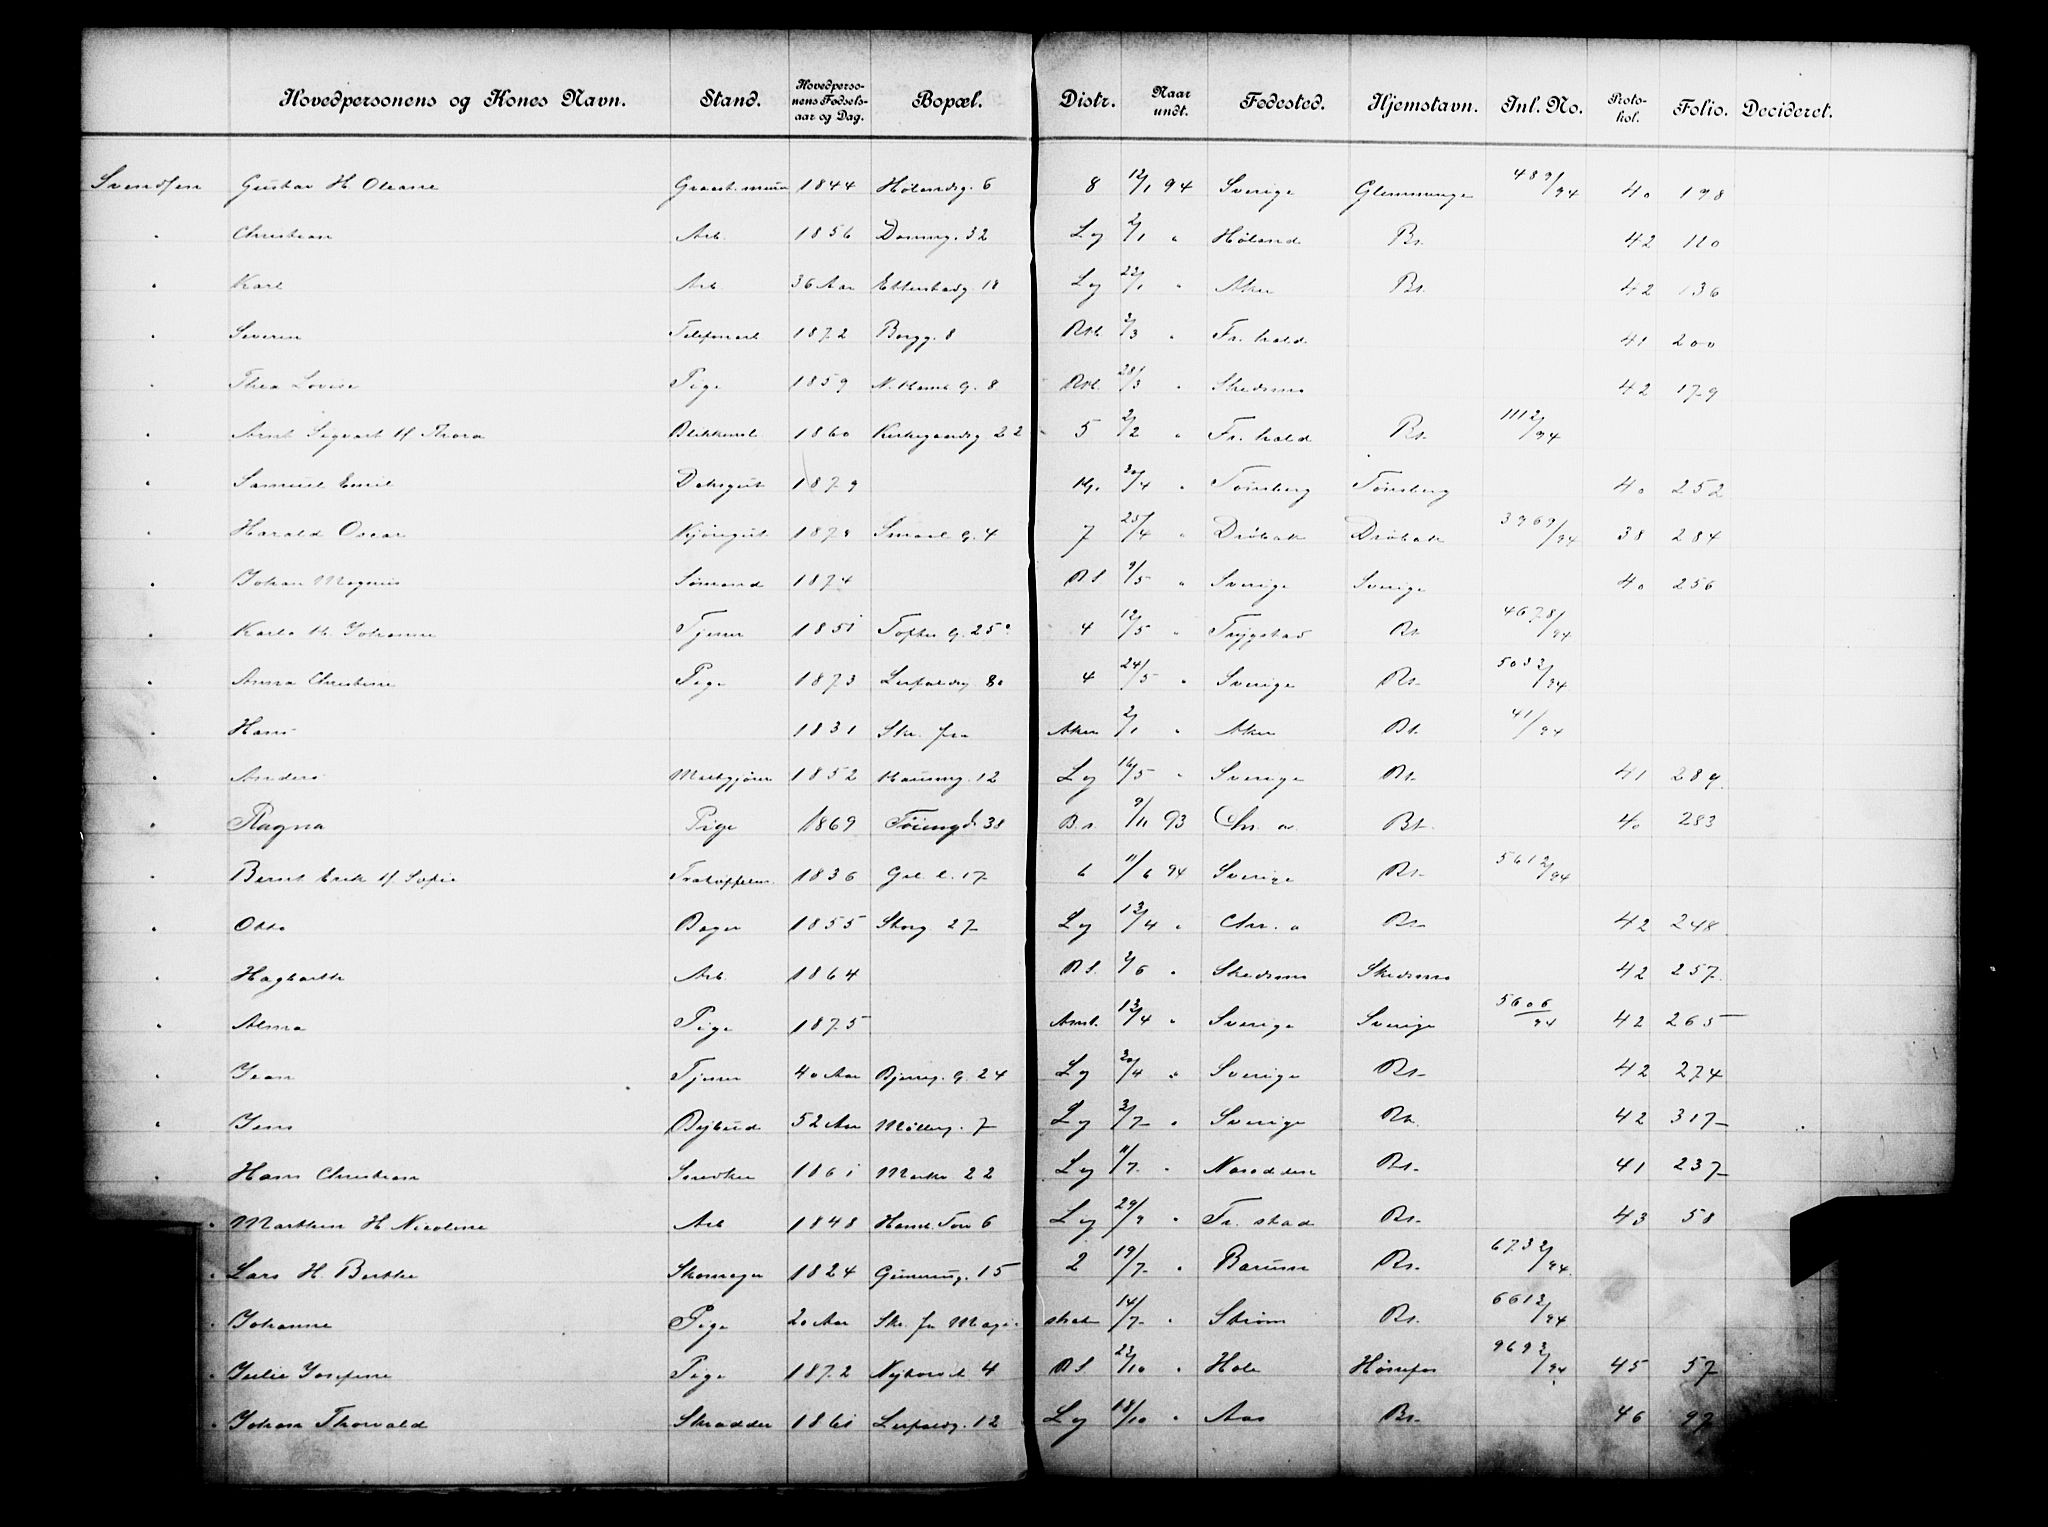 Hovedpersonens og Kones Navn. Stand. Hovedpersonens Fødselsaar og Dag. Bopæl. Distr. Naar undt. Fødested. Hjemstavn. Inl. No. Protokol. Folio. Decideret.
Svendsen Gustav H Oleane 1844 Hølandsg. 6 8 12/1 94 Sverige Glemminge 489/94 40 198
" Christian Arb. 1856 32 Lg 2/1 " Høland Bt. 42 110
" Karl Arb 36 Aar Etterstadg 18 Lg 22/1 " Aker Bt. 42 136
" Severin Telefonarb 1872 Borgg. 8 2/3 " Fr.hald 41 200
" Thea Lovise Pige 1859 8 28/3 " Skedsmo 42 179
" Arnt Sigvart H Thora Blikkensl 1860 Kirkegaardsg 22 5 2/2 " Fr.hald Bt. 1112/94
" Samuel Emil Daksgut 1879 20/4 " Tønsberg Tønsberg 40 252
" Harald Oscar Kjøregut 1879 Smaal. G. 4 7 25/4 " Drøbak Drøbak 3969/94 38 284
" Johan Magnus Sømand 1874 BS 9/5 " Sverige Sverige 40 256
" Karl H. Johanne Tjener 1851 Toftes G. 25 4 12/5 " Trygstad Bt 4678/94
" Anna Christine Pige 1873 Leirfaldsg 80 4 24/5 " Sverige Bt. 5032/94
" Hans 1831 Skr. fra Aker 2/1 " Aker Bt. 41/94
" Anders 1852 Hausmg. 12 Lg 16/5 " Sverige Bt. 41 289
" Ragna Pige 1869 Tøiengd. 38 B.s. 9/11 93 Chr. a. Bt. 40 283
" Bernt Erik H Sofie 1836 17 6 11/6 94 Sverige Bt. 5612/94
" Otto Bager 1855 Storg 27 Lg 13/4 " Chr. a Bt. 42 248
" Hagbarth Arb. 1864 BS. 2/6 " Skedsmo Skedsmo 42 257
" Alma Pige 1875 Amt. 13/4 " Sverige Sverige 5606/94 42 265
" Jean Tjener 40 Aar Bjerreg. G. 24 Lg 20/4 " Sverige Bt. 42 274
" Jens Bejbud 52 Aar Møllerg. 7 Lg 3/7 " Sverige Bt. 42 317
" Hans Christian Snedker 1861 Markv 22 Lg 11/7 " Næsodden Bt. 41 237
" Marthin H Nicoline Arb 1848 6 Lg 29/9 " Fr. stad Bt. 43 58
" Lars H. Berthe Skomager 1824 15 2 19/7 " Bærum Bt. 6732/94
" Johanne Pige 20 Aar Skr. fra Mag. 14/7 " Strøm Bt. 6612/94
" Julie Josefine Pige 1872 4 BS 23/10 " Hole Hønefos 9692/94 45 57
" Johan Thorvald Skrædder 1861 Leirfaldsg. 12 Lg 18/10 " Aas Bt. 46 97